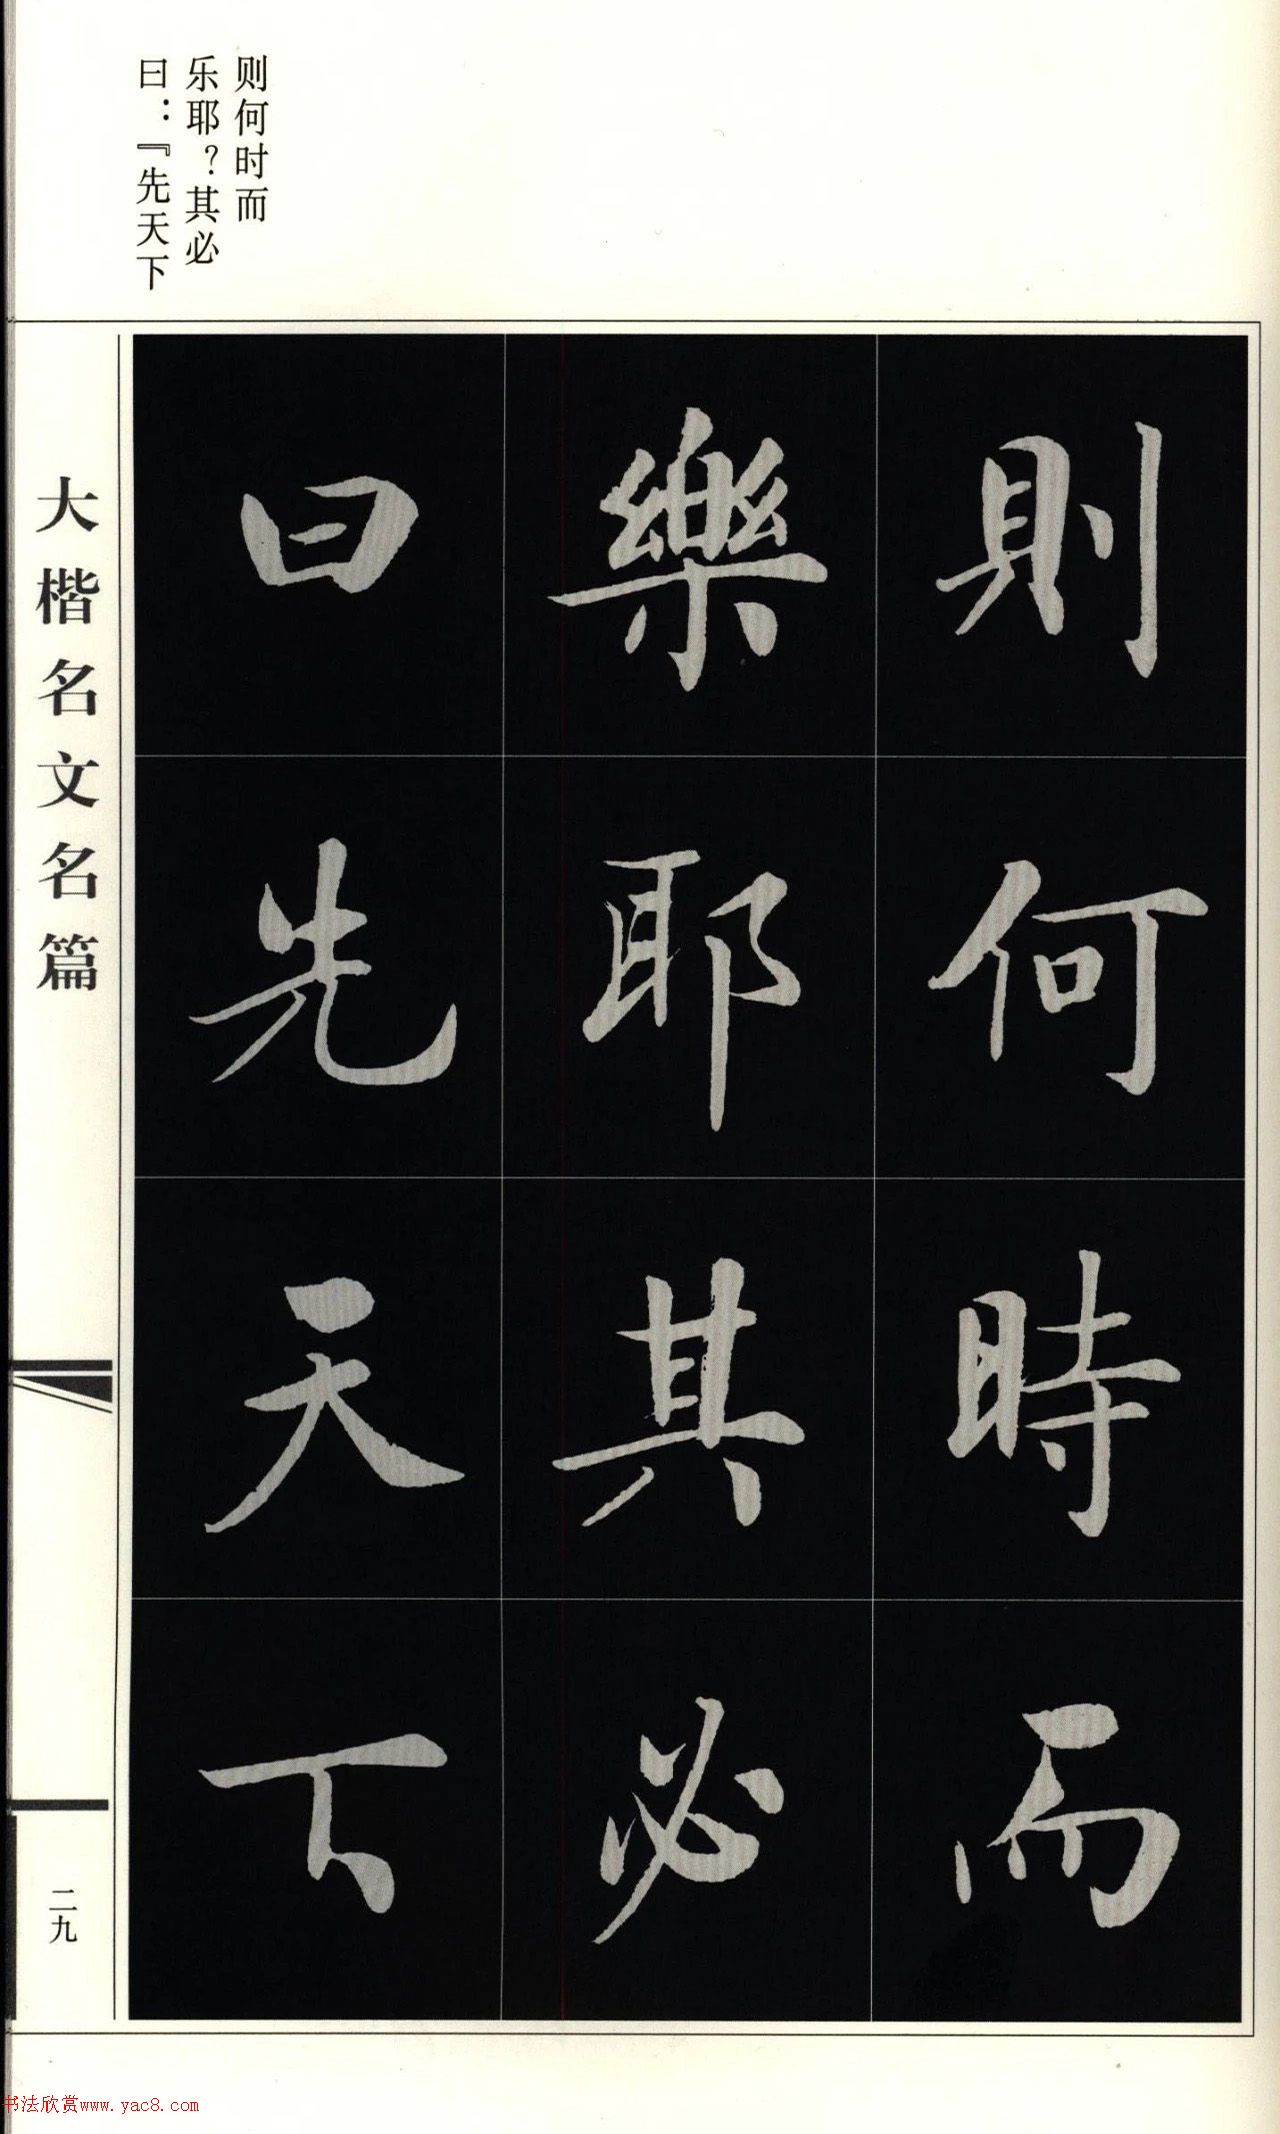 则何时而
乐耶？其必
曰：『先天下
則何時而
樂耶其必
曰先天下
大楷名文名篇
二九
书法欣赏www.yac8.com